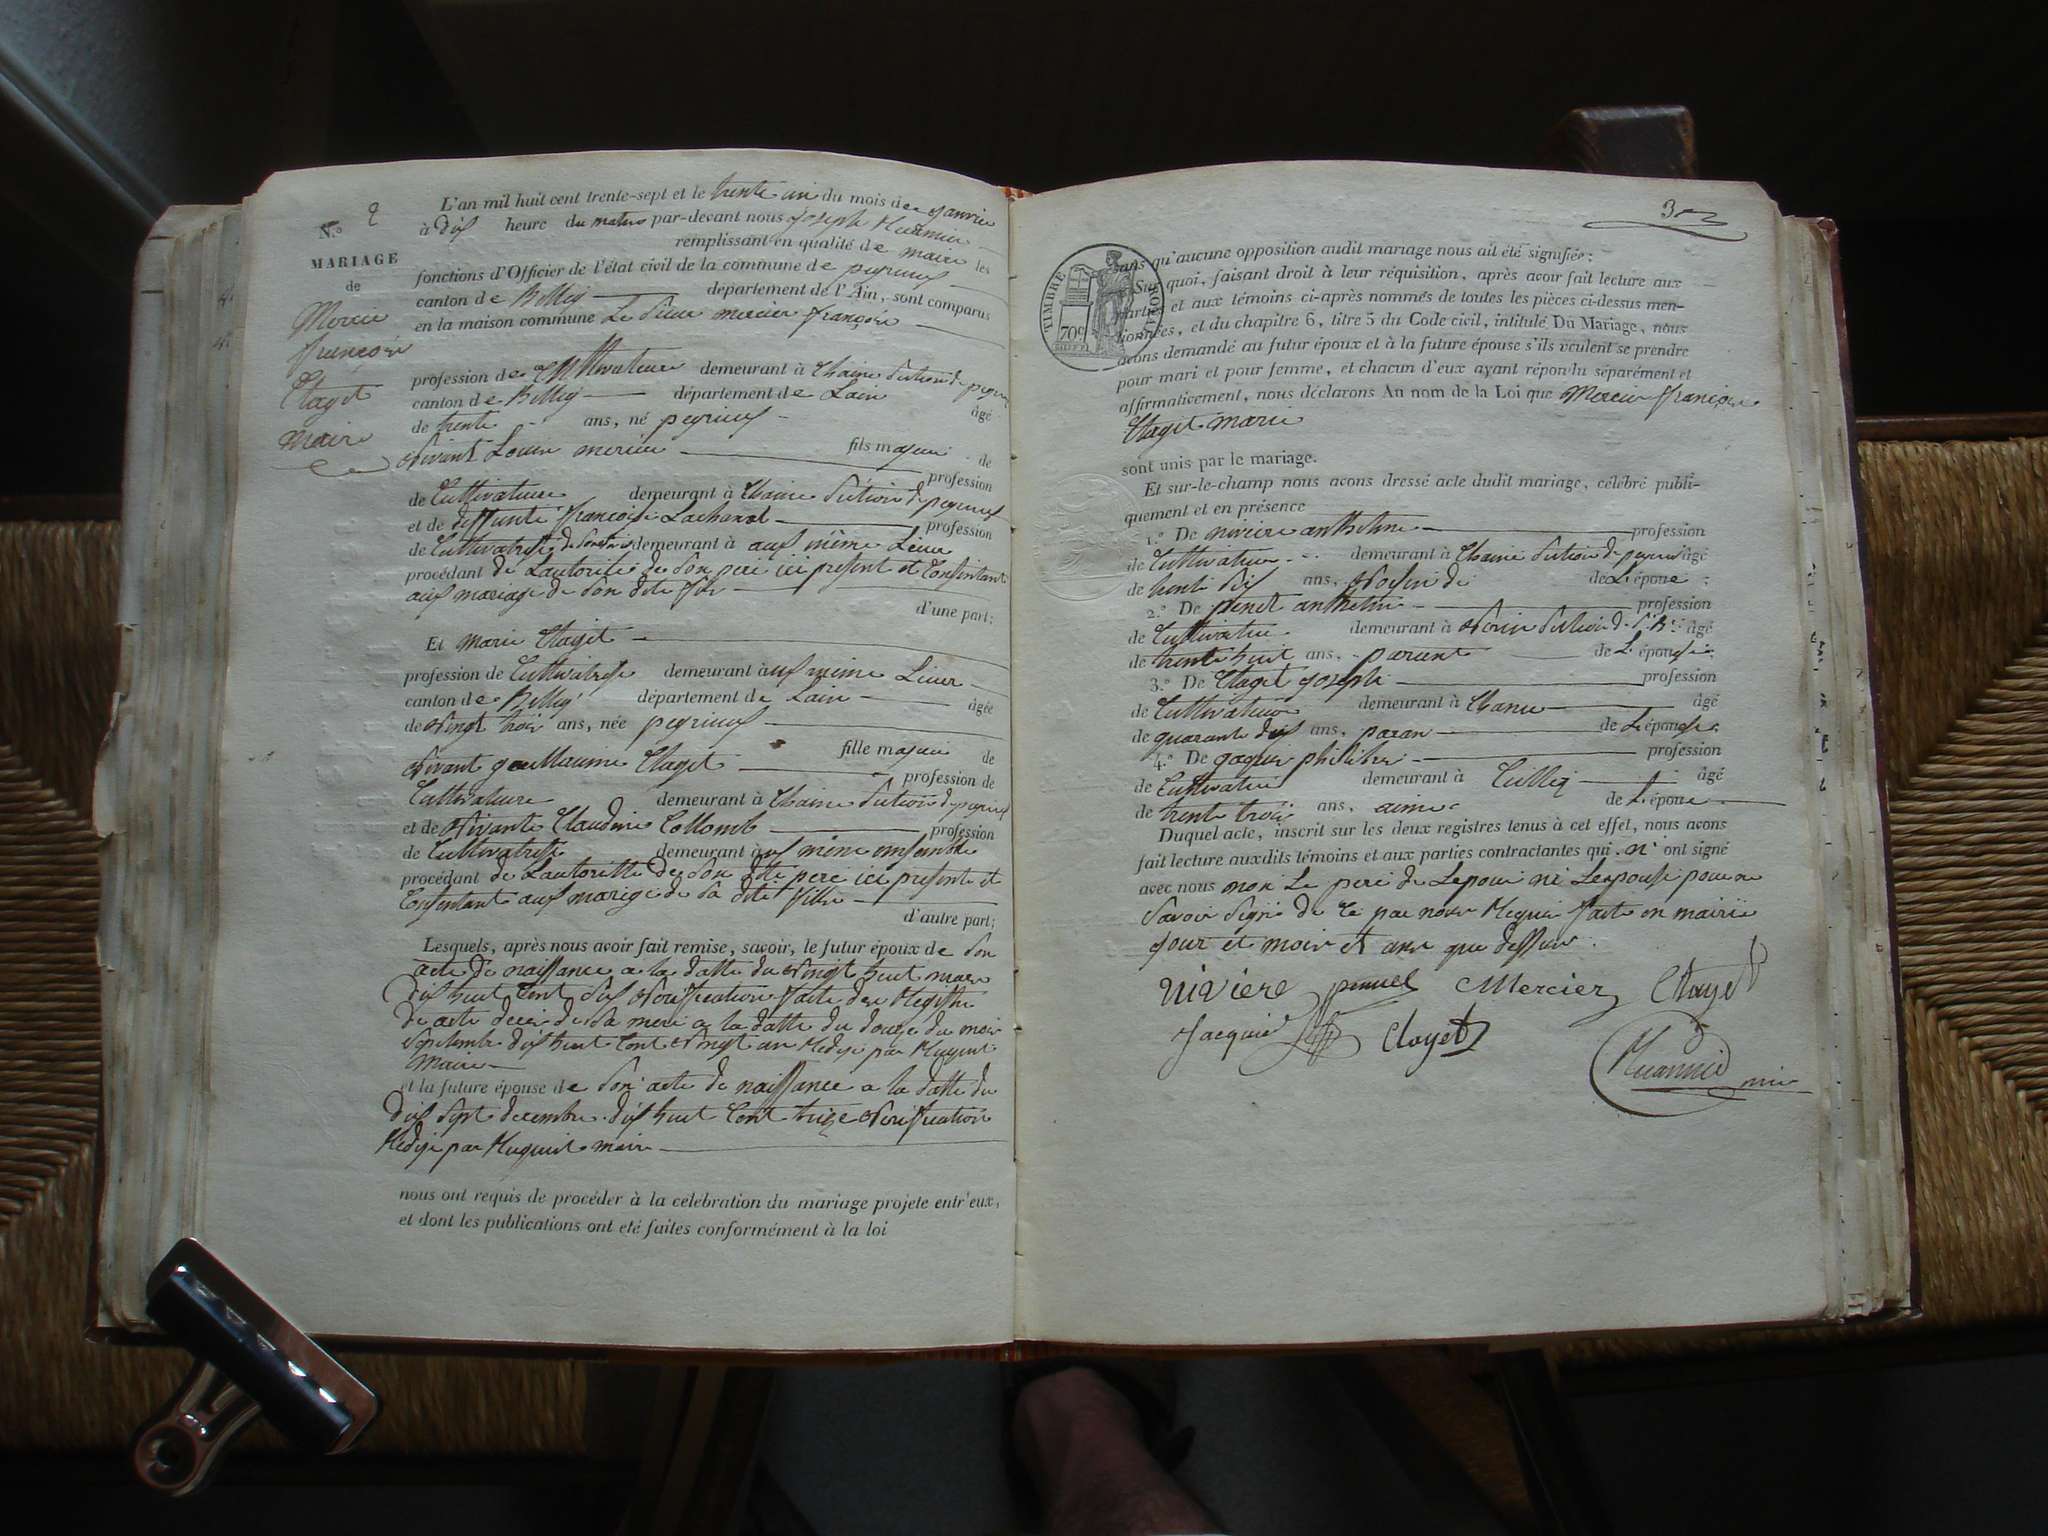 N.° 2
MARIAGE
de
Mercie
françois
Clayet
Marie
L'an mil huit cent trente-sept et le trente un du mois de janvier
à dix heure du matin par-devant nous joseph
remplissant en qualité de maire les
fonctions d'Officier de l'état civil de la commune de peyrieux
canton de Belley département de l'Ain, sont comparus
en la maison commune Le sieur mercier françois
profession de Cultivateur demeurant à
canton de Belley département de Lain âgé
de trente ans, né peyrieux
vivant Louis mercier fils majeur de
profession
de Cultivateur demeurant à
et de deffunte françoise Lachanal profession
de Cultivatrisse demeurant à aux même Lieux
procédant de Lautorite de son pere ici present et Consentant
aux mariage de son dite fils
d'une part;
Et marie Clayet
profession de Cultivatrise demeurant à aux même Lieux
canton de Belley département de Lain âgée
de vingt trois ans, née peyrieux
fille majeur de
vivant Clayet profession de
Cultivateur demeurant à
et de vivante Claudine Collomb profession
de Cultivatrise demeurant à aux même ensemble
procédant de Lautoritte de son dite pere ici presente et
Consentant aux marige de sa dite fille
d'autre part;
Lesquels, après nous avoir fait remise, savoir, le futur époux de son
acte de naissance a la datte du vingt huit mars
dix huit Cent six verification faite des Registre
de acte deces de sa mere a la datte du douze du mois
septembre dix huit Cent vingt un Redigé par Huguet
Maire
et la future épouse de son acte de naissance a la datte du
dix sept decembre dix huit Cent treize verification
Redigé par Huguet maire
nous ont requis de procéder à la célébration du mariage projeté entr'eux,
et dont les publications ont été faites conformément à la loi
3
TIMBRE ROYAL
70c
sans qu'aucune opposition audit mariage nous ait été signifiée;
Sur quoi, faisant droit à leur réquisition, après avoir fait lecture aux
parties et aux témoins ci-après nommés de toutes les pièces ci-dessus men-
tionnées, et du chapitre 6, titre 5 du Code civil, intitulé Du Mariage, nous
avons demandé au futur époux et à la future épouse s'ils veulent se prendre
pour mari et pour femme, et chacun d'eux ayant répondu séparément et
affirmativement, nous déclarons Au nom de la Loi que Mercier françois
Clayet marie
sont unis par le mariage.
Et sur-le-champ nous avons dressé acte dudit mariage, célébré publi-
quement et en présence
1.° De niviere anthelme profession
de Cultivateur demeurant à âgé
de trente six ans, voisin de de L'époux;
2.° De anthelme profession
de Cultivateur demeurant à âgé
de trente huit ans, parent de L'épouse;
3.° De Clayet joseph profession
de Cultivateur demeurant à âgé
de quarante dix ans, paran de L'épouse.
4.° De philiber profession
de Cultivateur demeurant à âgé
de trente trois ans, de L'époux
Duquel acte, inscrit sur les deux registres tenus à cet effet, nous avons
fait lecture auxdits témoins et aux parties contractantes qui n' ont signé
avec nous non Le pere de Lepoux ni Lespouse pour ne
savoir signé de ce par nous Requis faite en mairie
jour et mois et ans que dessus.
niviere Mercier Clayet
jacquie Clayet